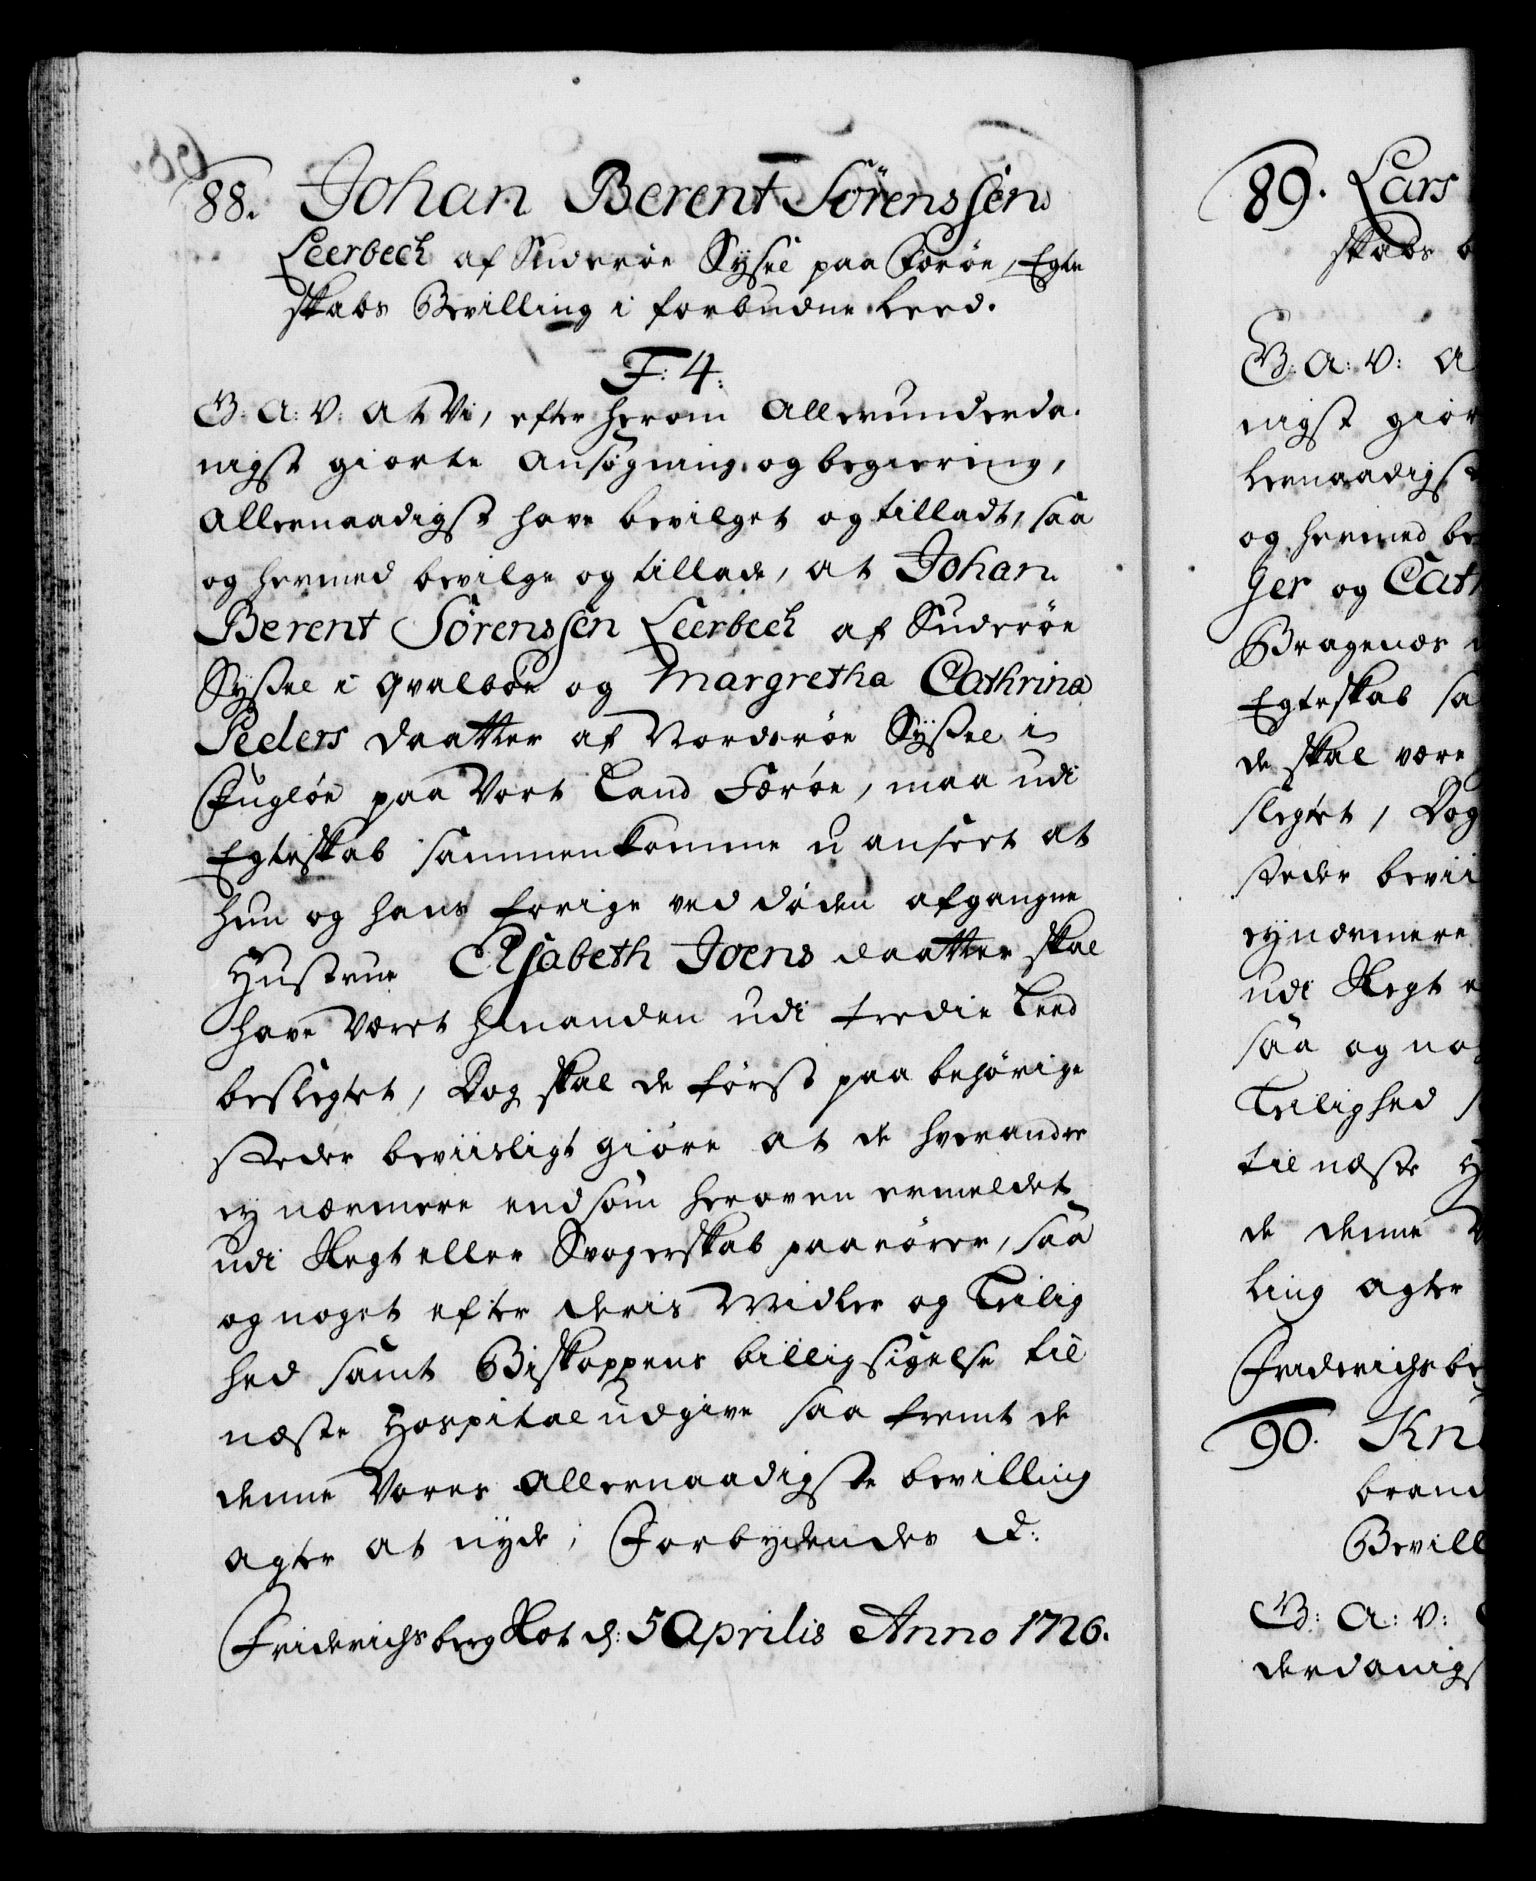 88. Johan Berent Sörenssen
Leerbech af Suderøe Sysel paa Færøe, Egte
skabs Bevilling i forbudne Leed.
F: 4:
G. A: V: At Vi, efter herom Allerunderda-
nigst giorte Ansøgning og begiering,
Allernaadigst have bevilget og tilladt, saa
og hermed bevilge og tillade, at Johan
Berent Sörenssen Leerbech af Suderøe
Syssel i Qvalbøe og Margretha Cathrina
Peders daatter af Norderøe Syssel i
Fugløe paa Vort Land Færøe, maa udi
Egteskab sammenkomme uanseet at
hun og hans forige ved døden afgangne
Hustrue Elsabeth Joens daatter skal
have været hinanden udi tredie Leed
beslegtet, Dog skal de først paa behørige
stæder beviisligt giøre at de hverandre
ey nærmere end som heroven ermeldet
udi Slegt eller Svogerskab paarører, saa
og noget efter deris Midler og Leilig
hed samt Biskoppens billigsigelse til
næste Hospital udgive saa fremt de
denne Vores Allernaadigste bevilling
agter at nyde, Forbydendes &:
Friderichsberg Slot d: 5 Aprilis Anno 1726.
89. Lars
skabs b
G: A: V: A
nigst gior
lernaadigst
og hermed be
ger og Cath
Bragenæs
Egteskab sa
de skal være
slegtet, Dog
steder bevii
ey nærmere
udi Slegt e
saa og no
Leilighed
til næste H
de denne V
ling agter
Friderichsbe
90. Kn
brand
Bevill
G: A: V:
derdanigs